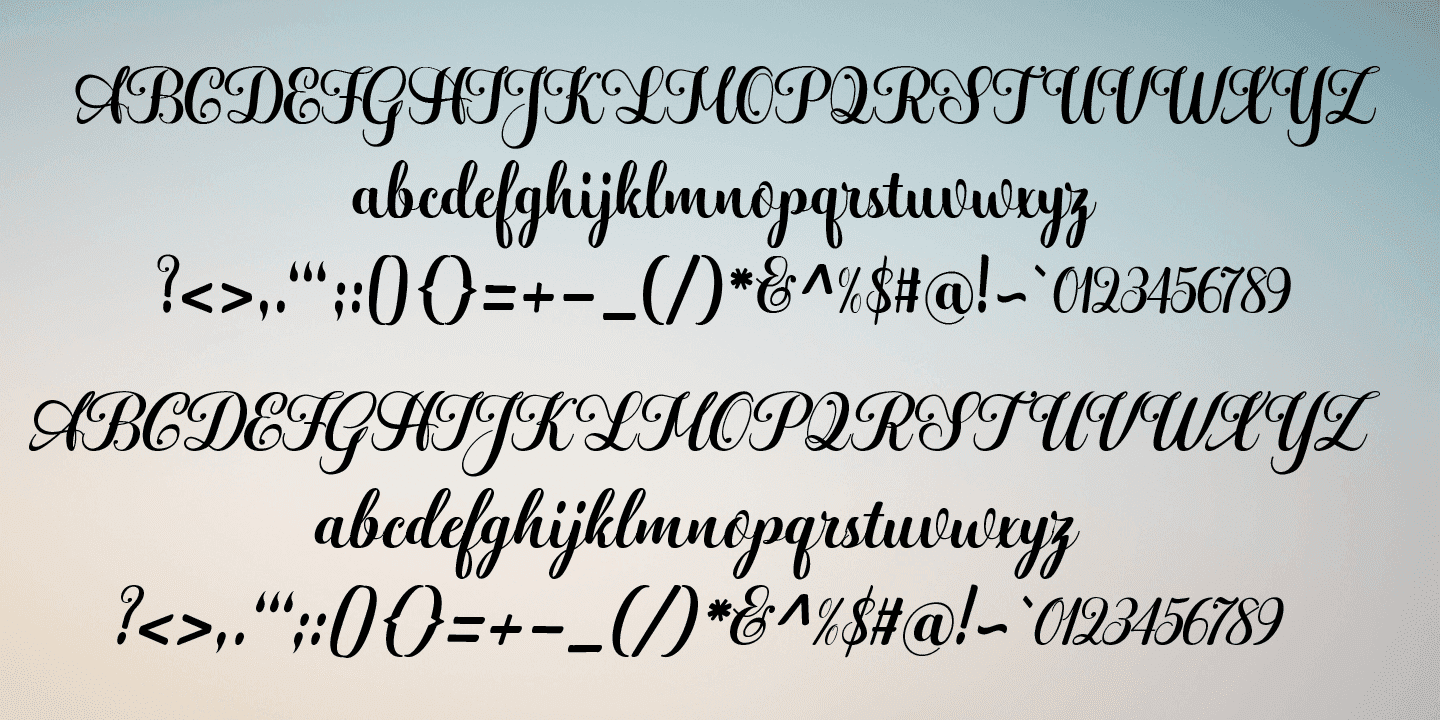 ABCDEFGHIJKLMOPQRSTUVWXYZ
abcdefghijklmnopqrstuvwxyz
?<>,.“‘;:(){}=+-_(/)*&^%$#@!~`0123456789
ABCDEFGHIJKLMOPQRSTUVWXYZ
abcdefghijklmnopqrstuvwxyz
?<>,.“‘;:(){}=+-_(/)*&^%$#@!~`0123456789